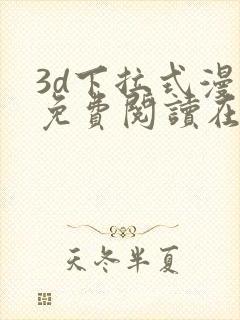 3d下拉式漫
免費閱讀在
天冬半夏